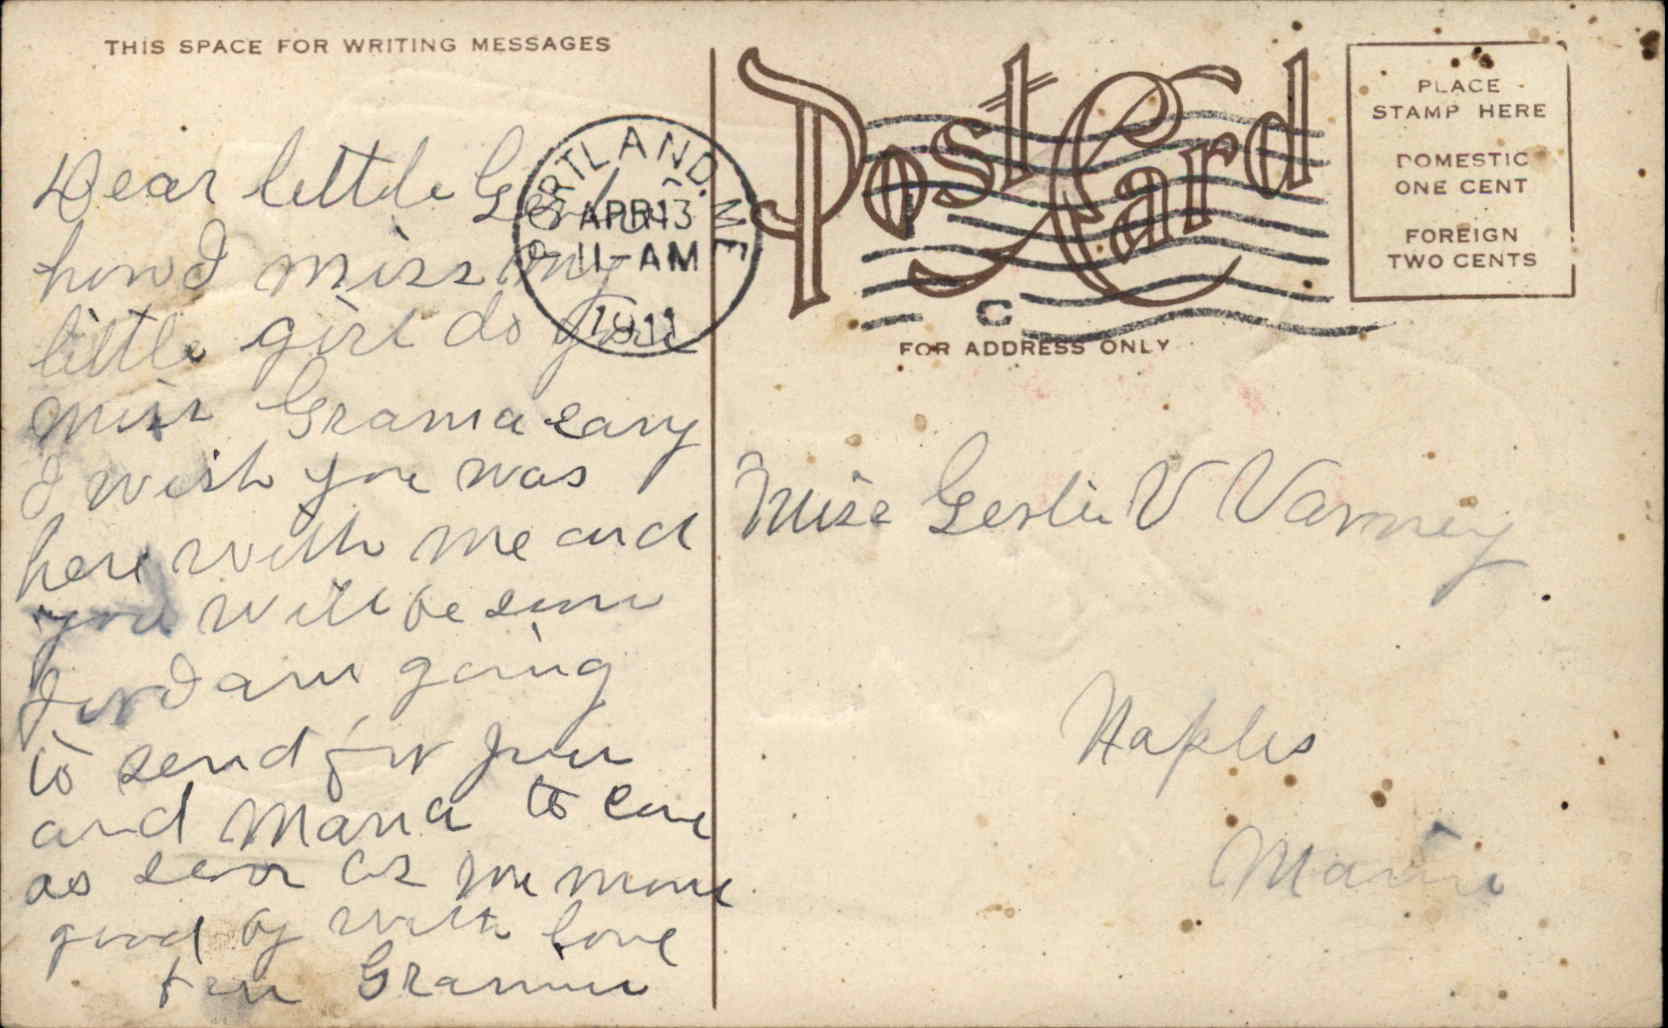 THIS SPACE FOR WRITING MESSAGES
Dear little
how I miss my
little girl do you
miss Grama sary
I wish you was
here with me and
you will be
for I am going
to send for you
and Mama to come
as soon as we move
good by with love
Gramma
PORTLAND, ME
APR 13
11-AM
1911
Post Card
C
FOR ADDRESS ONLY
PLACE
STAMP HERE
DOMESTIC
ONE CENT
FOREIGN
TWO CENTS
Miss Leslie V Varney
Naples
Maine